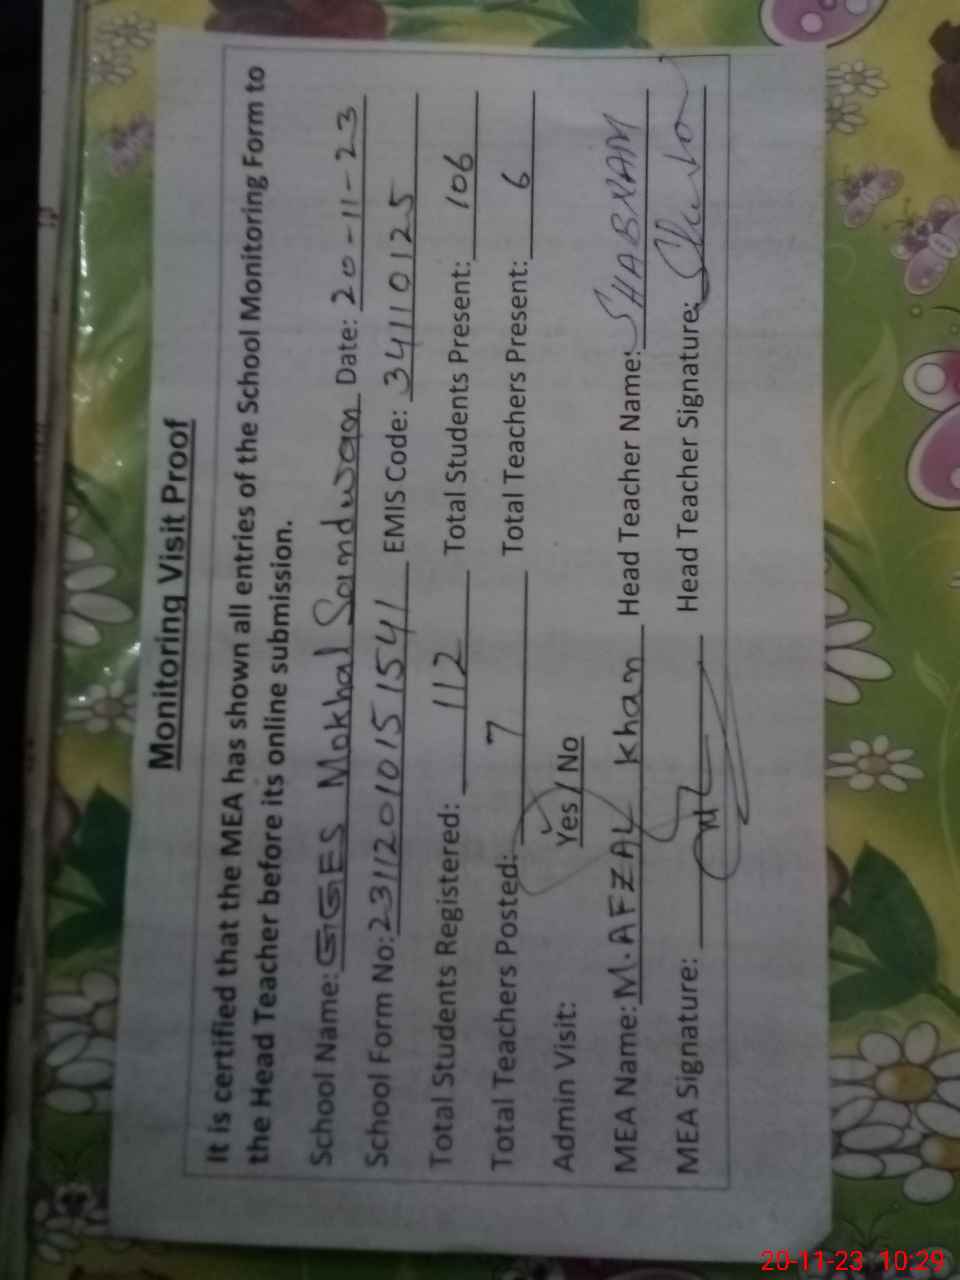 Monitoring Visit Proof
It is certified that the MEA has shown all entries of the School Monitoring Form to
the Head Teacher before its online submission.
School Name: GGES Mokhal Sandwaan Date: 20-11-23
School Form No: 231120101515541 EMIS Code: 34110125
Total Students Registered: 112 Total Students Present: 106
Total Teachers Posted: 7 Total Teachers Present: 6
Admin Visit: Yes / No
MEA Name: M.AFZAL Khan Head Teacher Name: SHABNAM
MEA Signature: Head Teacher Signature:
20-11-23 10:29